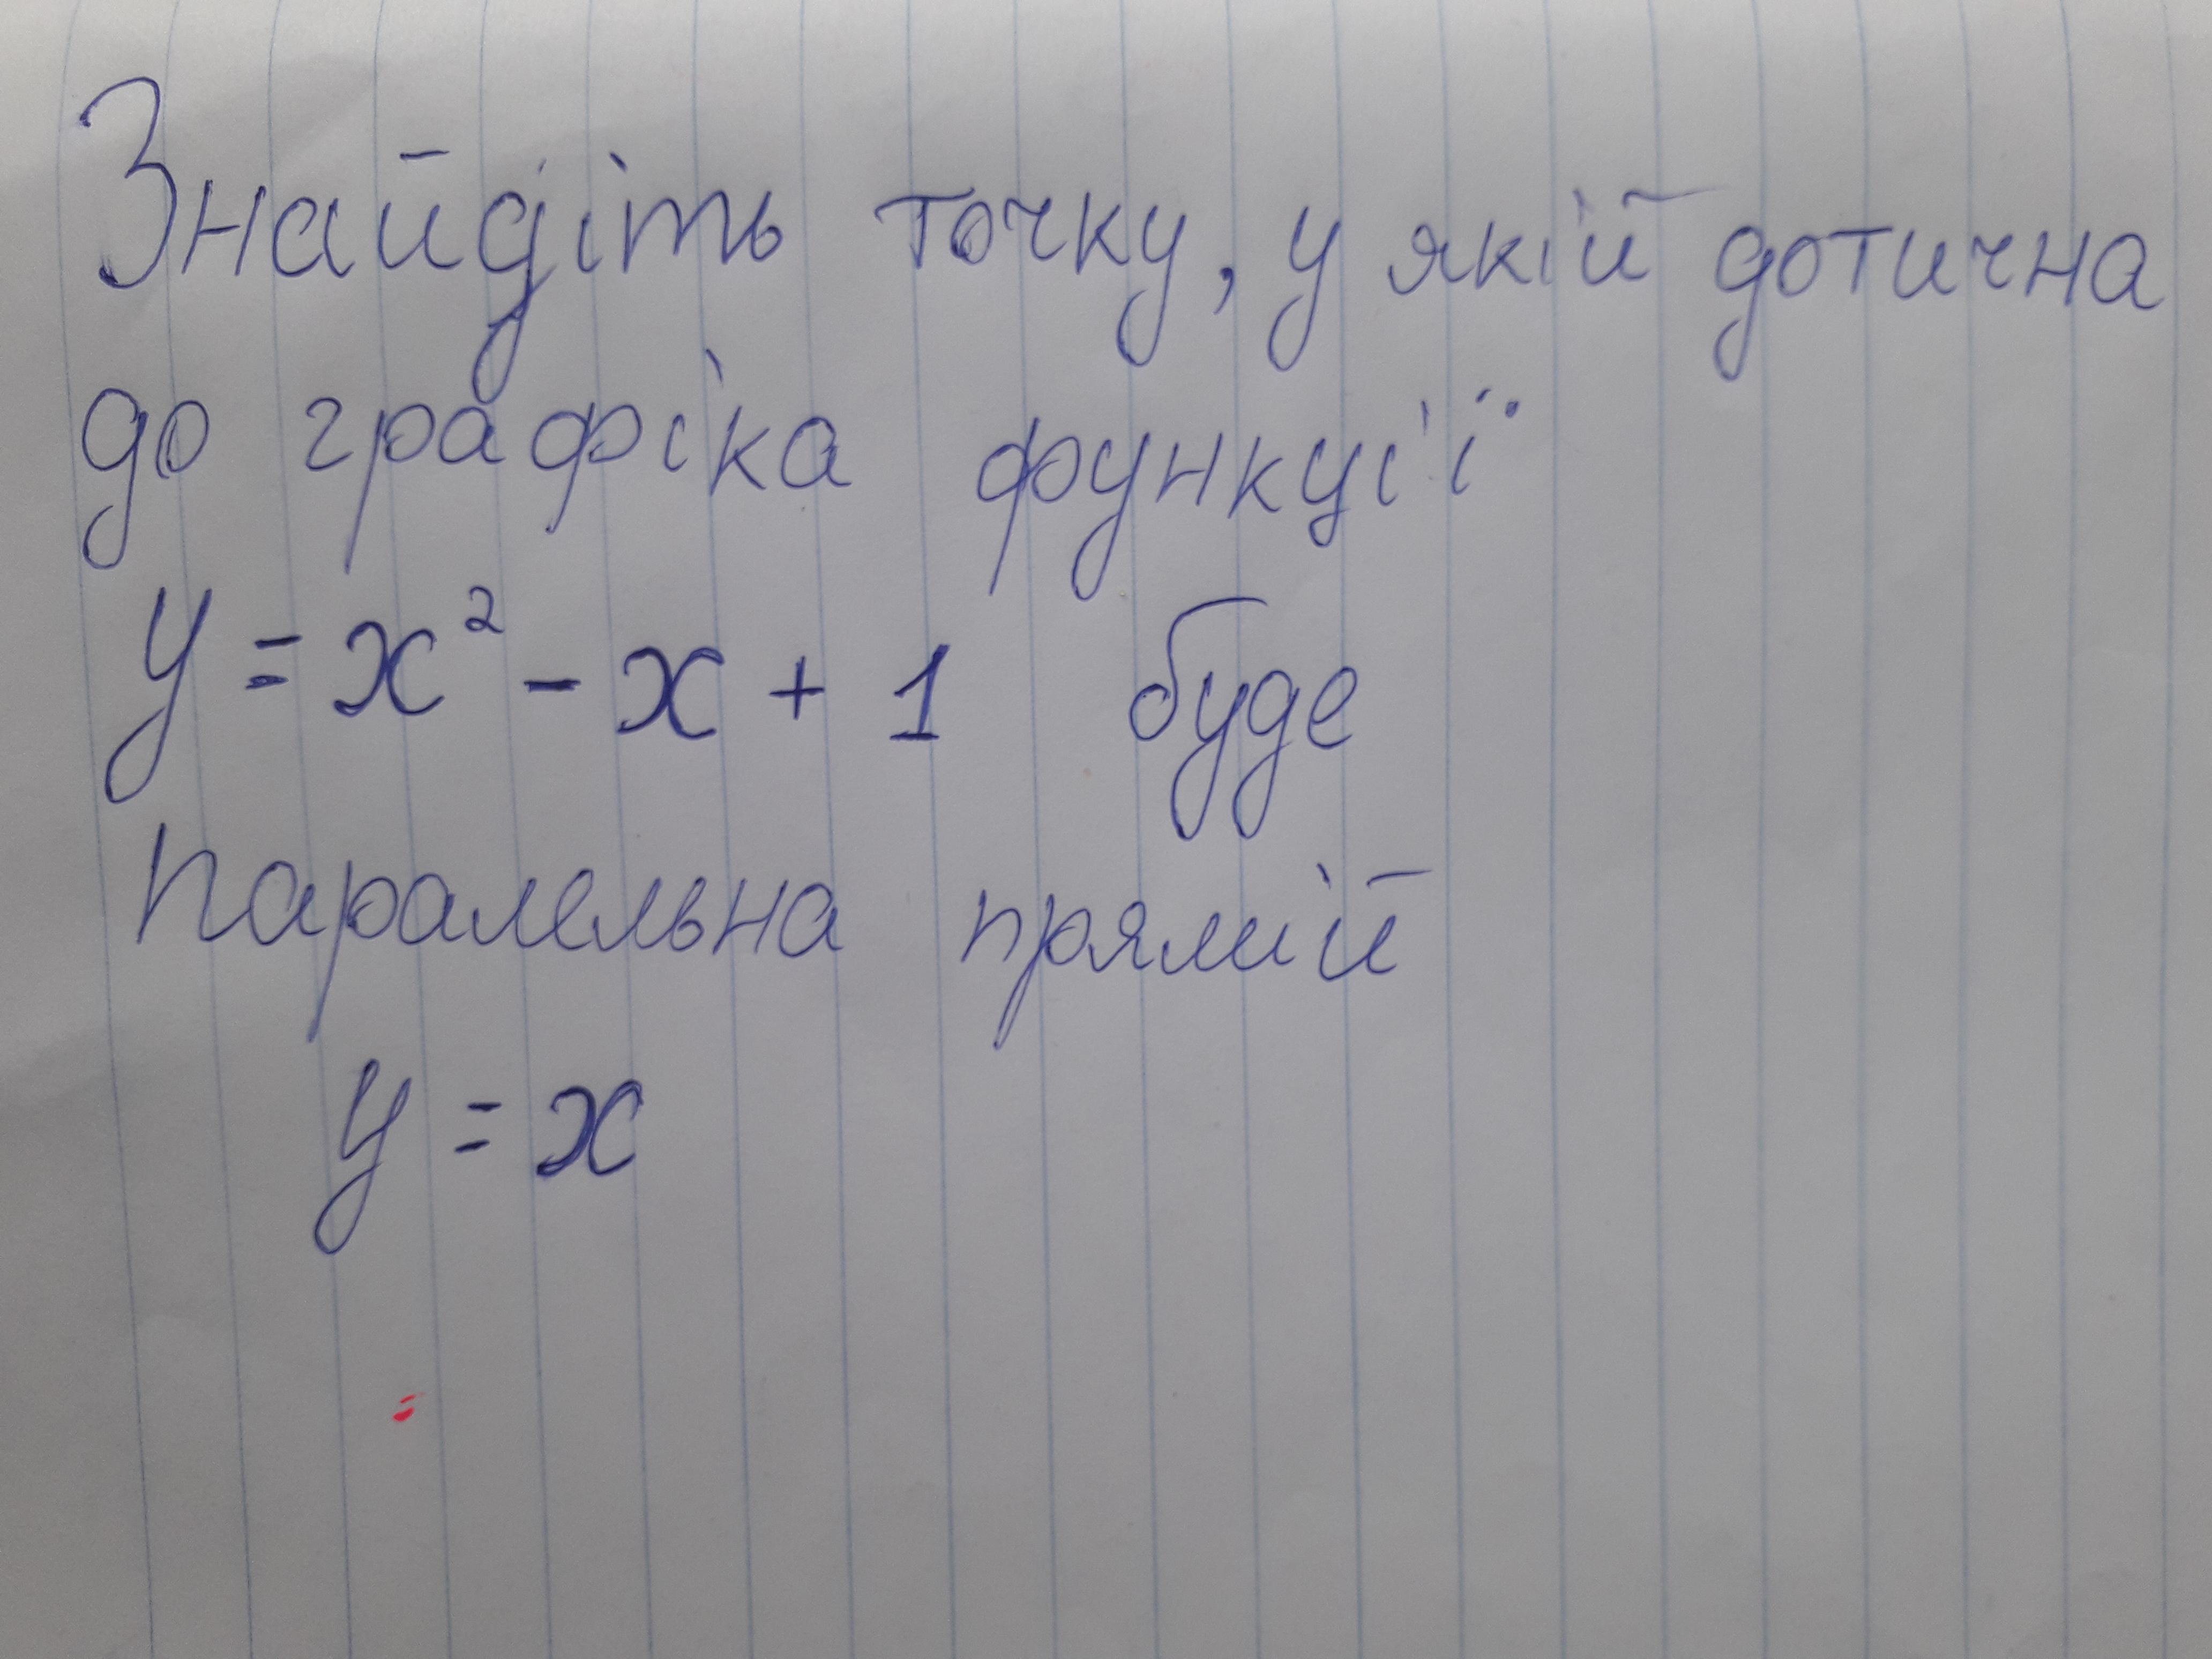 Знайдіть точку, у якій дотична
до графіка функції
y = x² - x + 1 буде
паралельна прямій
y = x